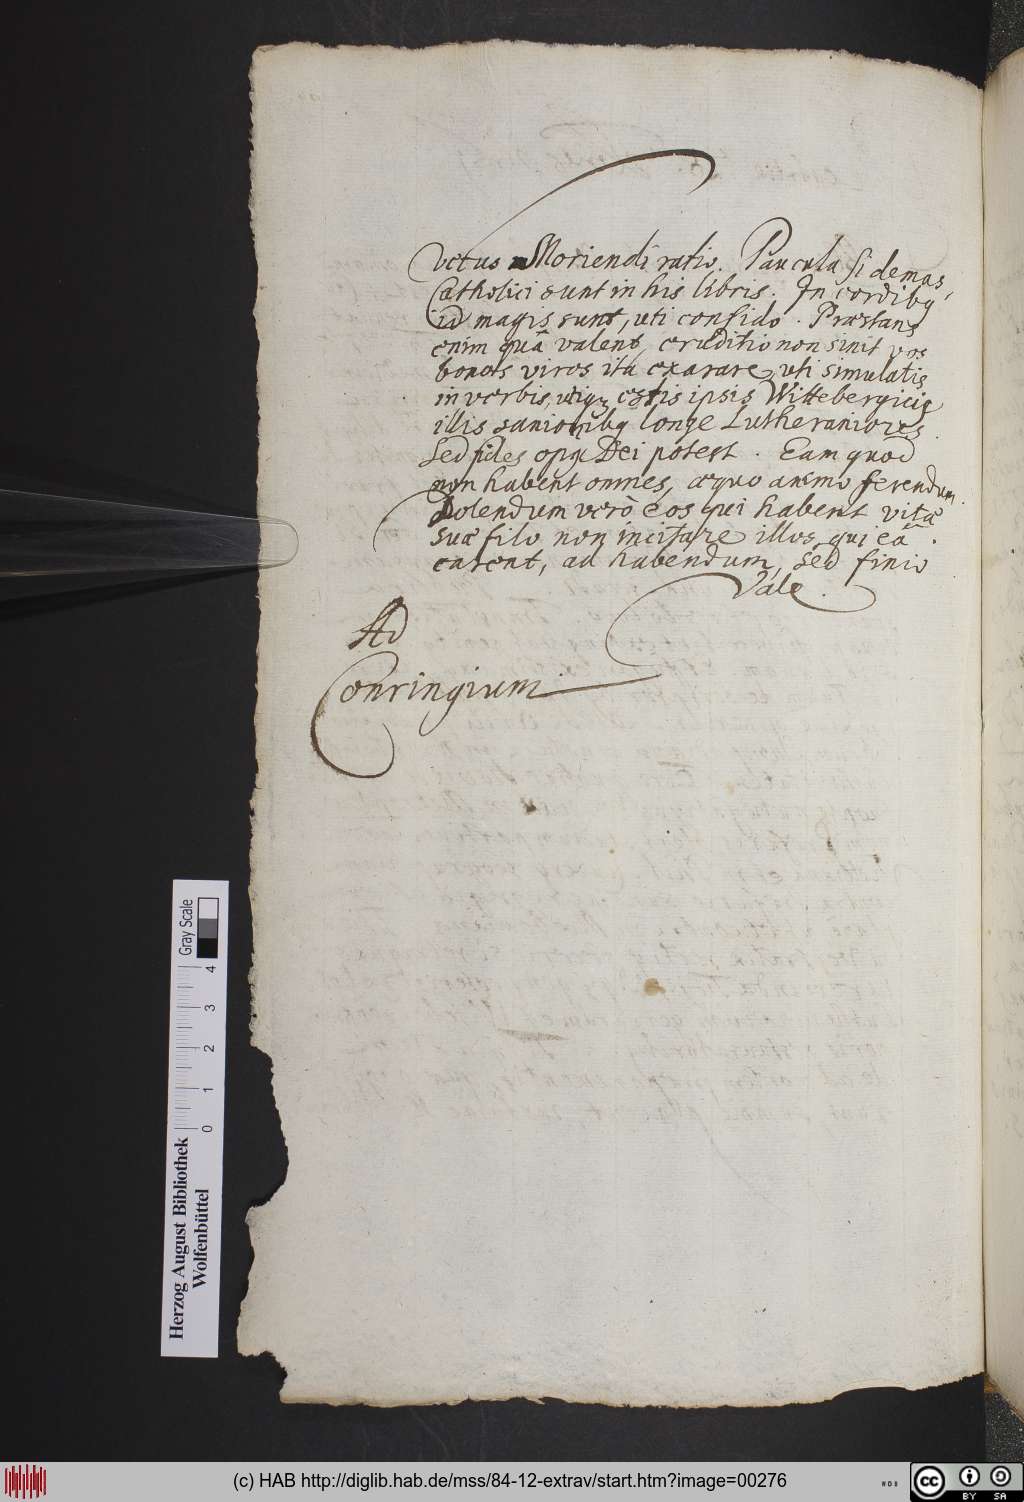 Vetus Moriendi ratio. Paucula si demas,
Catholici sunt in his libris. In cordibq
id magis sunt, uti confido. Præstans
enim quâ valent, eruditio non sinit vos
bonos viros ita exarare, uti simulatis
in verbis, utiqz estis ipsis Wittebergicis
illis sanioribq longe Lutheraniores
Sed fides opq Dei potest. Eam quod
non habent omnes, æquo animo ferendum.
Dolendum verò eos qui habent vitæ
suæ filo non incitare illos, qui eâ
carent, ad habendum, sed finio
Vale.
Ad
Conringium
Herzog August Bibliothek
Wolfenbüttel
0 1 2 3 4
Gray Scale
(c) HAB http://diglib.hab.de/mss/84-12-extrav/start.htm?image=00276
cc BY SA